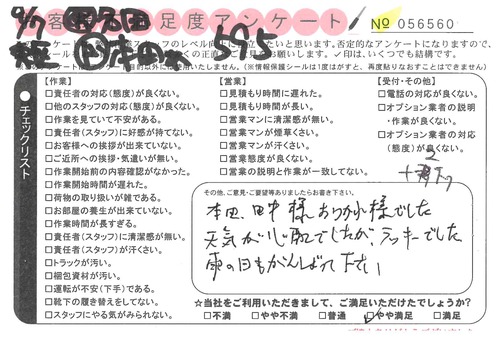 9/7
お客様満足度アンケート
No 056560
6025
□責任者の対応(態度)が良くない。
□他のスタッフの対応(態度)が良くない。
□作業を見ていて不安がある。
□責任者(スタッフ)に好感が持てない。
□お客様への挨拶が出来ていない。
□ご近所への挨拶・気遣いが無い。
□作業開始前の内容確認がなかった。
□作業開始時間が遅れた。
□荷物の取り扱いが雑である。
□お部屋の養生が出来ていない。
□作業時間が長すぎる。
□責任者(スタッフ)に清潔感が無い。
□責任者(スタッフ)が汗くさい。
□トラックが汚い。
□梱包資材が汚い。
□運転が不安(下手)である。
□靴下の履き替えをしてない。
□スタッフにやる気がみられない。
チェックリスト
【作業】
【営業】
□見積もり時間に遅れた。
□見積もり時間が長い。
□営業マンに清潔感が無い。
□営業マンが煙草くさい。
□営業マンが汗くさい。
□営業態度が良くない。
□営業の説明と作業が一致してない。
【受付・その他】
□電話の対応が良くない。
□オプション業者の説明
・作業が良くない。
□オプション業者の対応
(態度)が良くない。
その他、ご意見・ご要望等ありましたらお書き下さい。
本田、田中様ありがとう様でした
天気が心配でしたが、ラッキーでした、
雨の日もがんばって下さい
☆当社をご利用いただきまして、ご満足いただけたでしょうか?
□不満 □やや不満 □普通 □やや満足 □満足